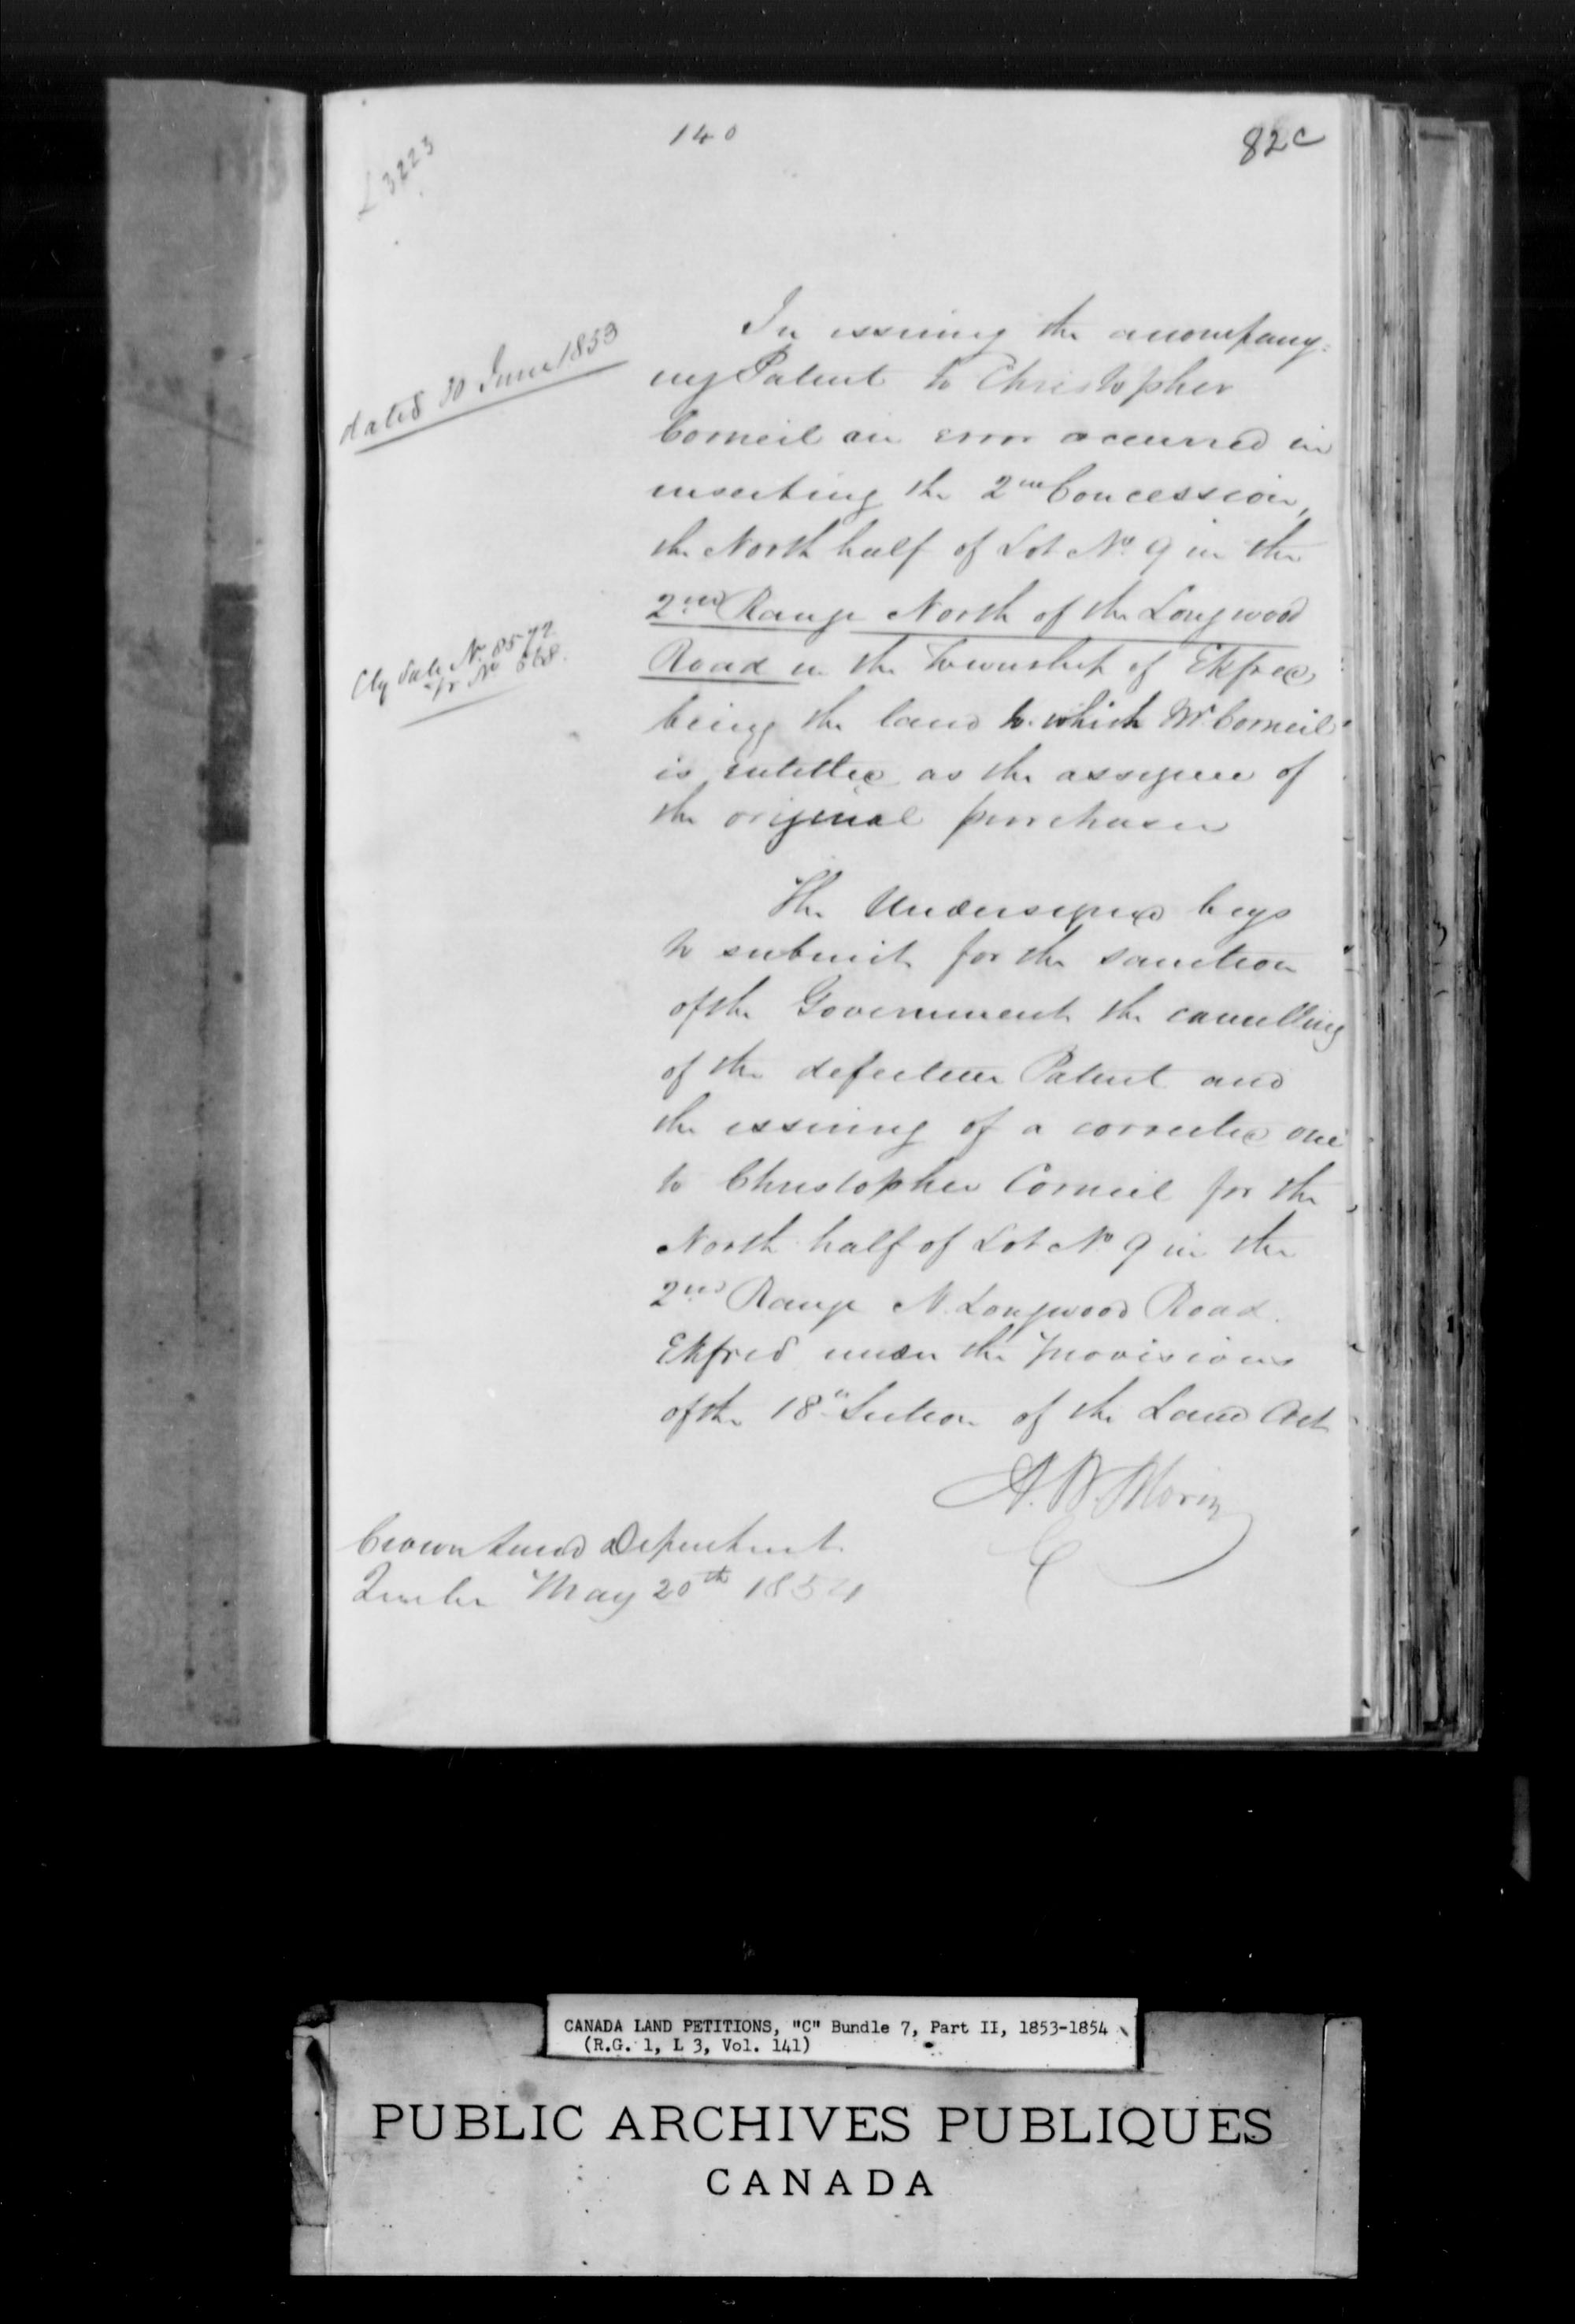 140
82c
L 3223
In issuing the accompany=
ing Patent to Christopher
dated 30 June 1853
Corneil an error occurred in
inserting the 2nd Concession,
the North half of Lot No. 9 in the
2nd Range North of the Longwood
Road in the Township of Ekfred
Cly Sale No. 8572
being the land to which Mr Corneil
is entitled as the assignee of
the original purchaser
The Undersigned begs
to submit for the sanction
of the Government the cancelling
of the defective Patent and
the issuing of a corrected one
to Christopher Corneil for the
North half of Lot No 9 in the
2nd Range N. Longwood Road.
Ekfrid under the provisions
of the 18th Section of the Land Act
A. N. Morin
Crown Land Department
Quebec May 20th 1854
CANADA LAND PETITIONS, "C" Bundle 7, Part II, 1853-1854
(R.G. 1, L 3, Vol. 141)
PUBLIC ARCHIVES PUBLIQUES
CANADA